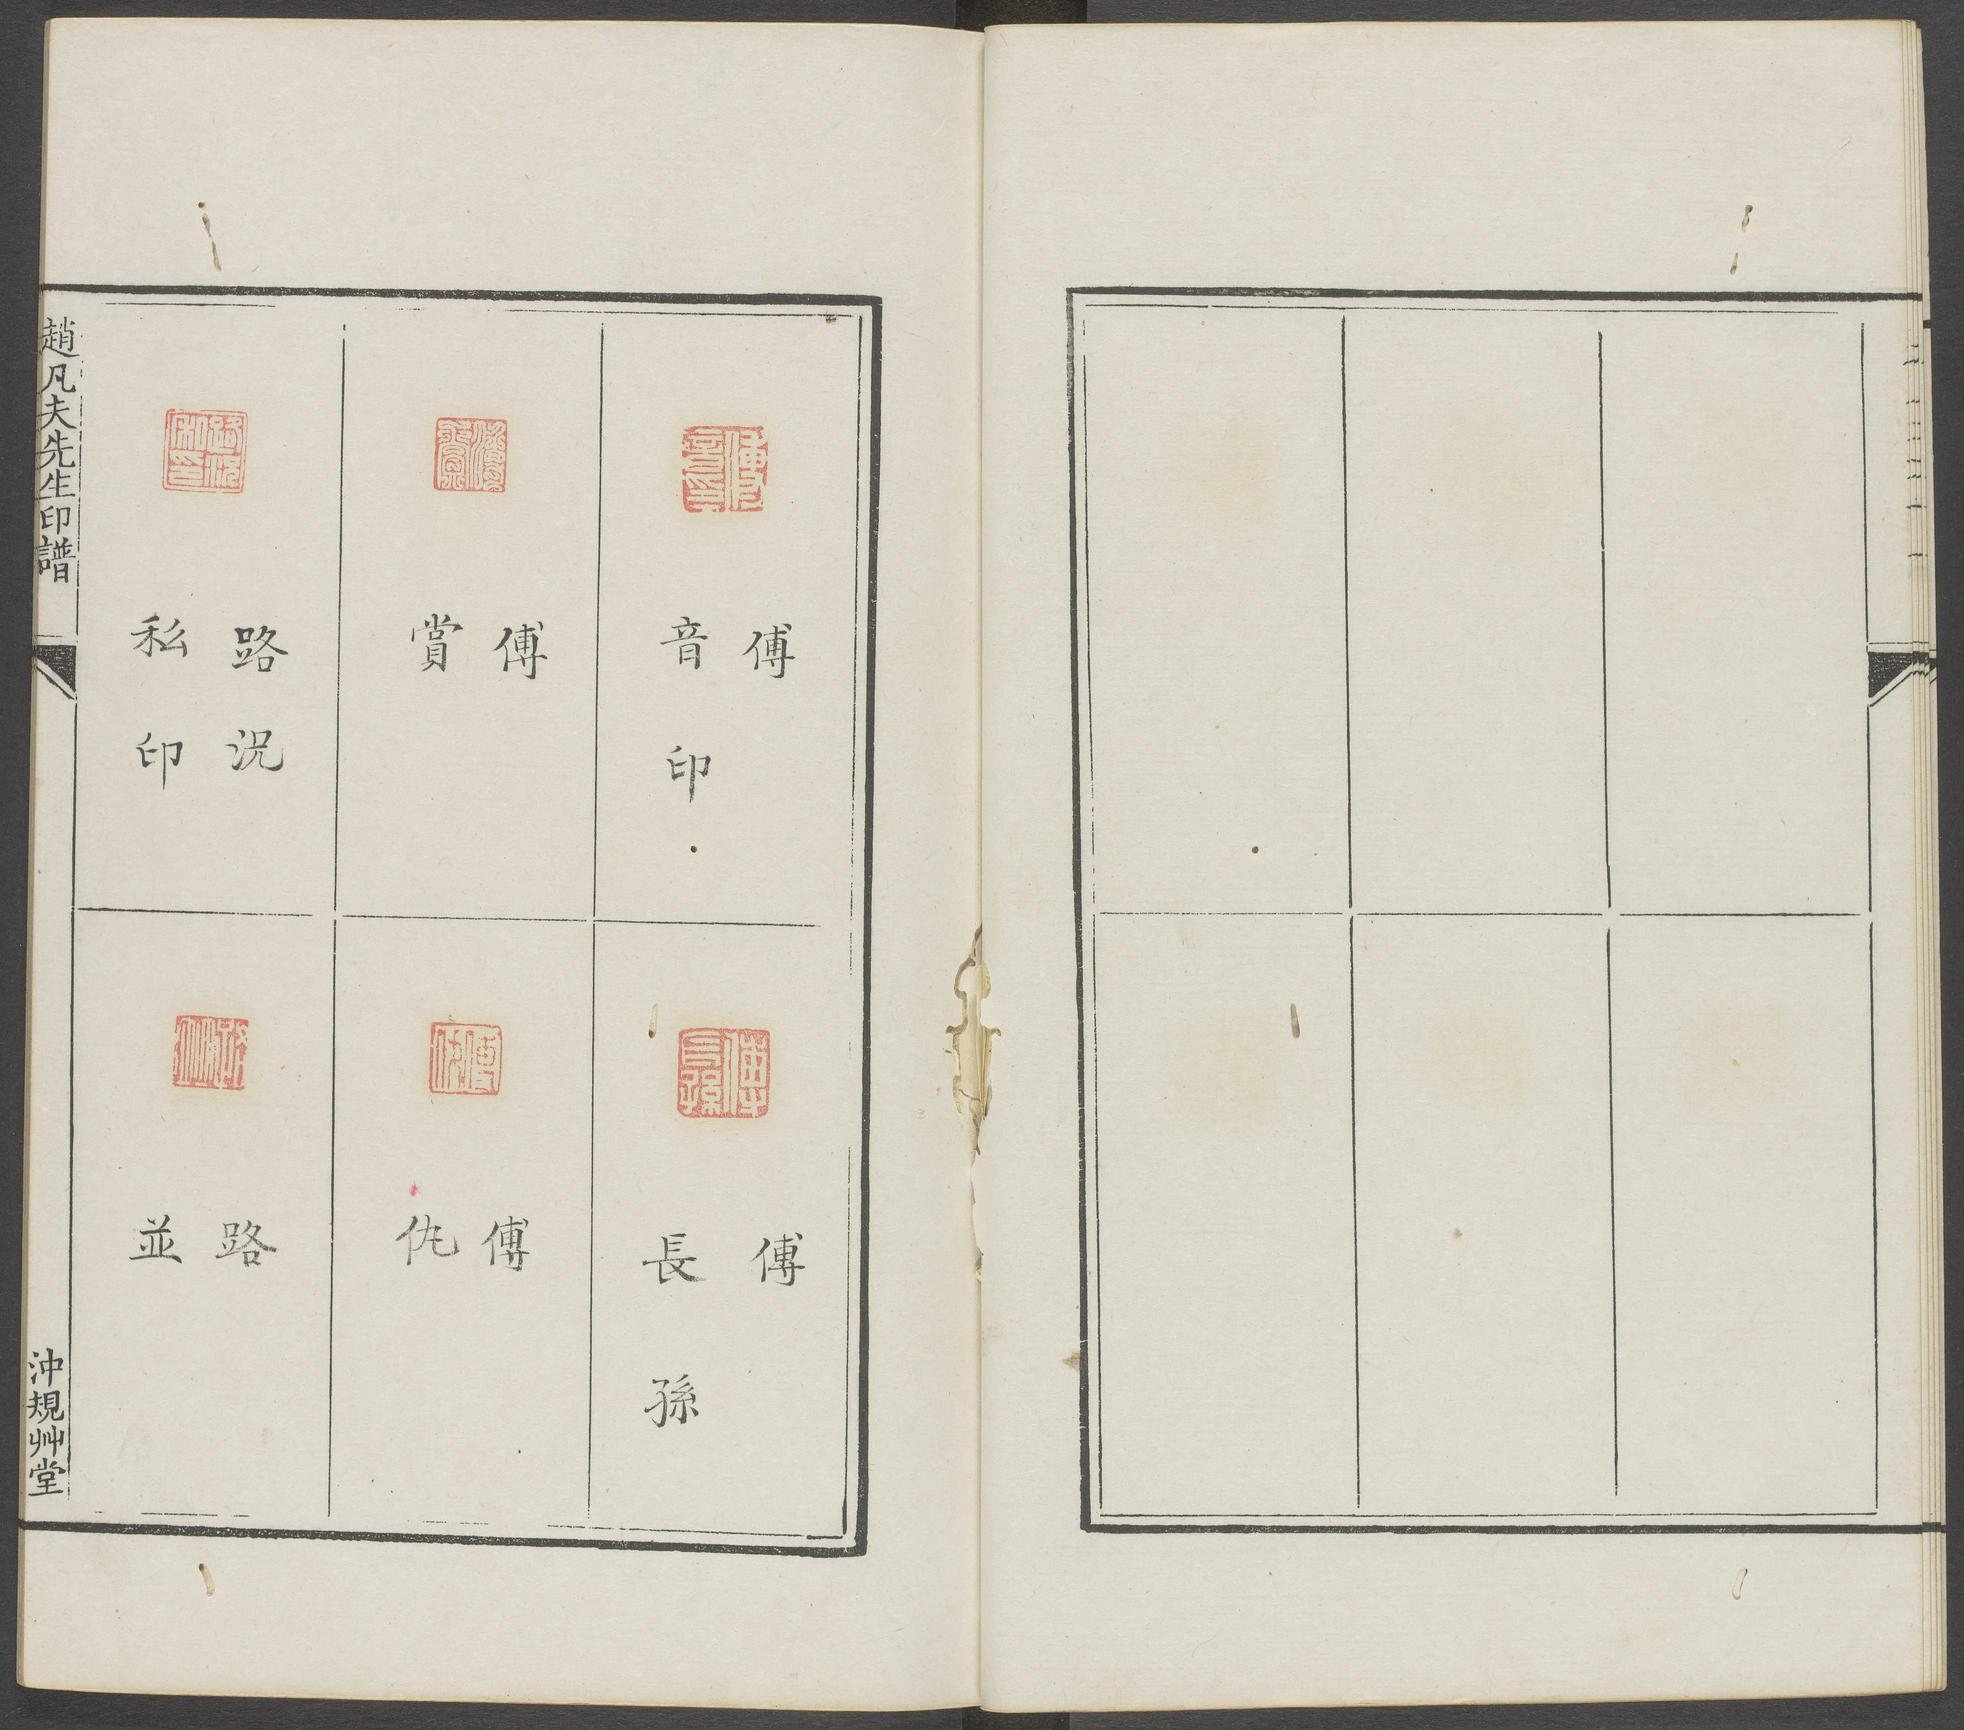 傅
音印
傅
長孫
傅
賞
傅
仇
路況
私印
路
並
趙凡夫先生印譜
沖規艸堂